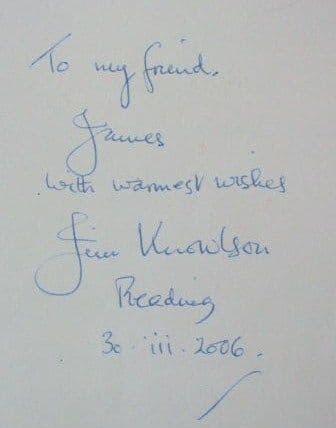 To my friend,
James
with warmest wishes
Jim Knowlson
Reading
30·iii·2006.